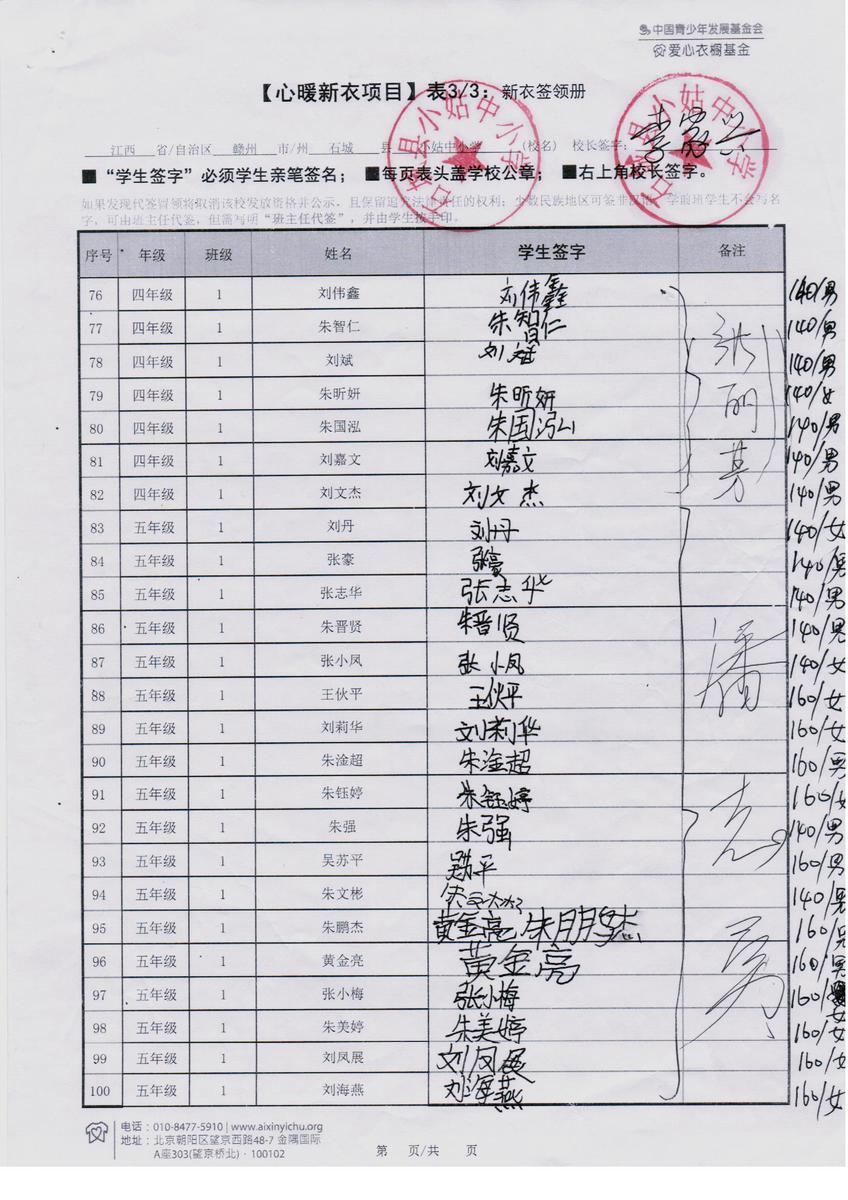 中国青少年发展基金会
爱心衣橱基金
【心暖新衣项目】表3/3：新衣签领册
江西 省/自治区 赣州 市/州 石城 县 小姑中小学 (校名) 校长签字：
■“学生签字”必须学生亲笔签名；■每页表头盖学校公章；■右上角校长签字。
如果发现代签冒领将取消该校发放资格并公示，且保留追究法律责任的权利；少数民族地区可签非汉语，学前班学生不会写名
字，可由班主任代签，但需写明“班主任代签”，并由学生按手印。
序号 年级 班级 姓名 学生签字 备注
76 四年级 1 刘伟鑫 刘伟鑫 140/男
77 四年级 1 朱智仁 朱智仁 140/男
78 四年级 1 刘斌 刘斌 140/男
79 四年级 1 朱昕妍 朱昕妍 140/女
80 四年级 1 朱国泓 朱国泓 140/男
81 四年级 1 刘嘉文 刘嘉文 140/男
82 四年级 1 刘文杰 刘文杰 140/男
83 五年级 1 刘丹 刘丹 140/女
84 五年级 1 张豪 张豪 140/男
85 五年级 1 张志华 张志华 140/男
86 五年级 1 朱晋贤 朱晋贤 140/男
87 五年级 1 张小凤 张小凤 140/女
88 五年级 1 王伙平 王伙平 160/女
89 五年级 1 刘莉华 刘莉华 160/女
90 五年级 1 朱淦超 朱淦超 160/男
91 五年级 1 朱钰婷 朱钰婷 160/女
92 五年级 1 朱强 朱强 140/男
93 五年级 1 吴苏平 160/男
94 五年级 1 朱文彬 140/男
95 五年级 1 朱鹏杰 黄金亮 朱鹏杰 160/男
96 五年级 1 黄金亮 黄金亮 160/男
97 五年级 1 张小梅 张小梅 160/女
98 五年级 1 朱美婷 朱美婷 160/女
99 五年级 1 刘凤展 刘凤展 160/女
100 五年级 1 刘海燕 刘海燕 160/女
电话：010-8477-5910 | www.aixinyichu.org
地址：北京朝阳区望京西路48-7 金隅国际
A座303(望京桥北)·100102
第 页/共 页